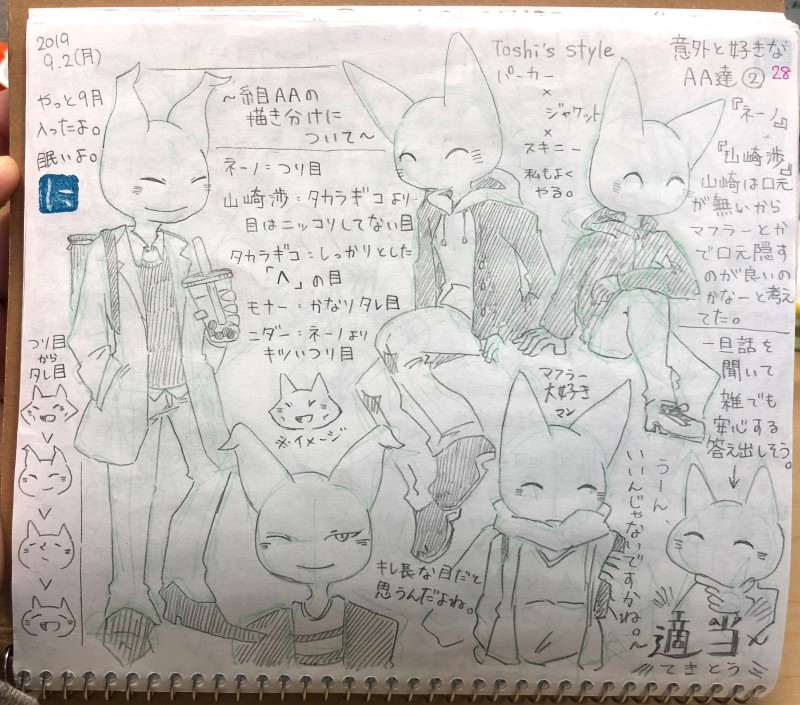 2019
9.2(月)
やっと9月
入ったよ。
眠いよ。
に
～糸目AAの
描き分けに
ついて～
ネーノ:つり目
山崎渉:タカラギコより
目はニッコリしてない目
タカラギコ:しっかりとした
「ヘ」の目
モナー:かなりタレ目
ニダー:ネーノより
キツいつり目
※イメージ
つり目
から
タレ目
Toshi's style
パーカー
×
ジャケット
×
スキニー
私もよく
やる。
意外と好きな
AA達②
28
『ネーノ』
『山崎渉』
山崎は口元
が無いから
マフラーとか
で口元隠す
のが良いの
かなーと考え
てた。
一旦話を
聞いて
雑でも
安心する
答え出しそう。
マフラー
大好き
マン
キレ長な目だと
思うんだよね。
うーん、
いいんじゃないですかね。～
適当
てきとう